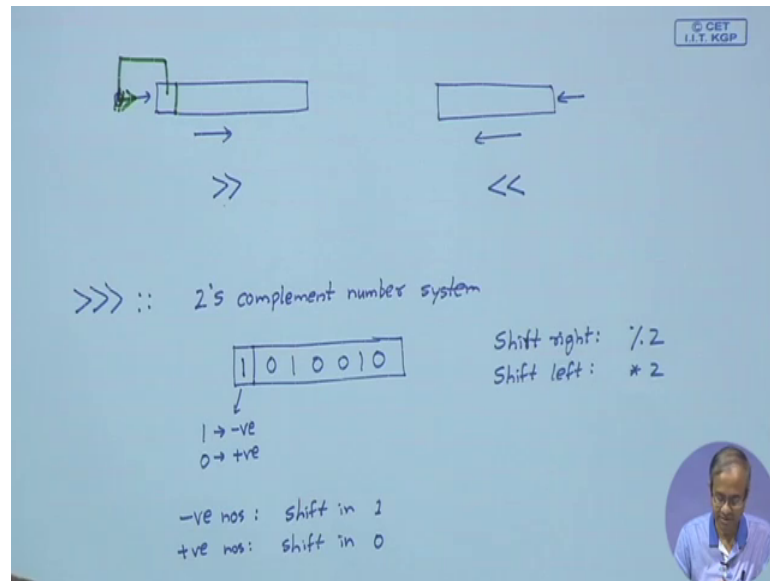 © CET
I.I.T. KGP
>>
<<
>>> :: 2's complement number system
1 0 1 0 0 1 0
Shift right: %2
Shift left: *2
1 → -ve
0 → +ve
-ve nos: Shift in 1
+ve nos: Shift in 0